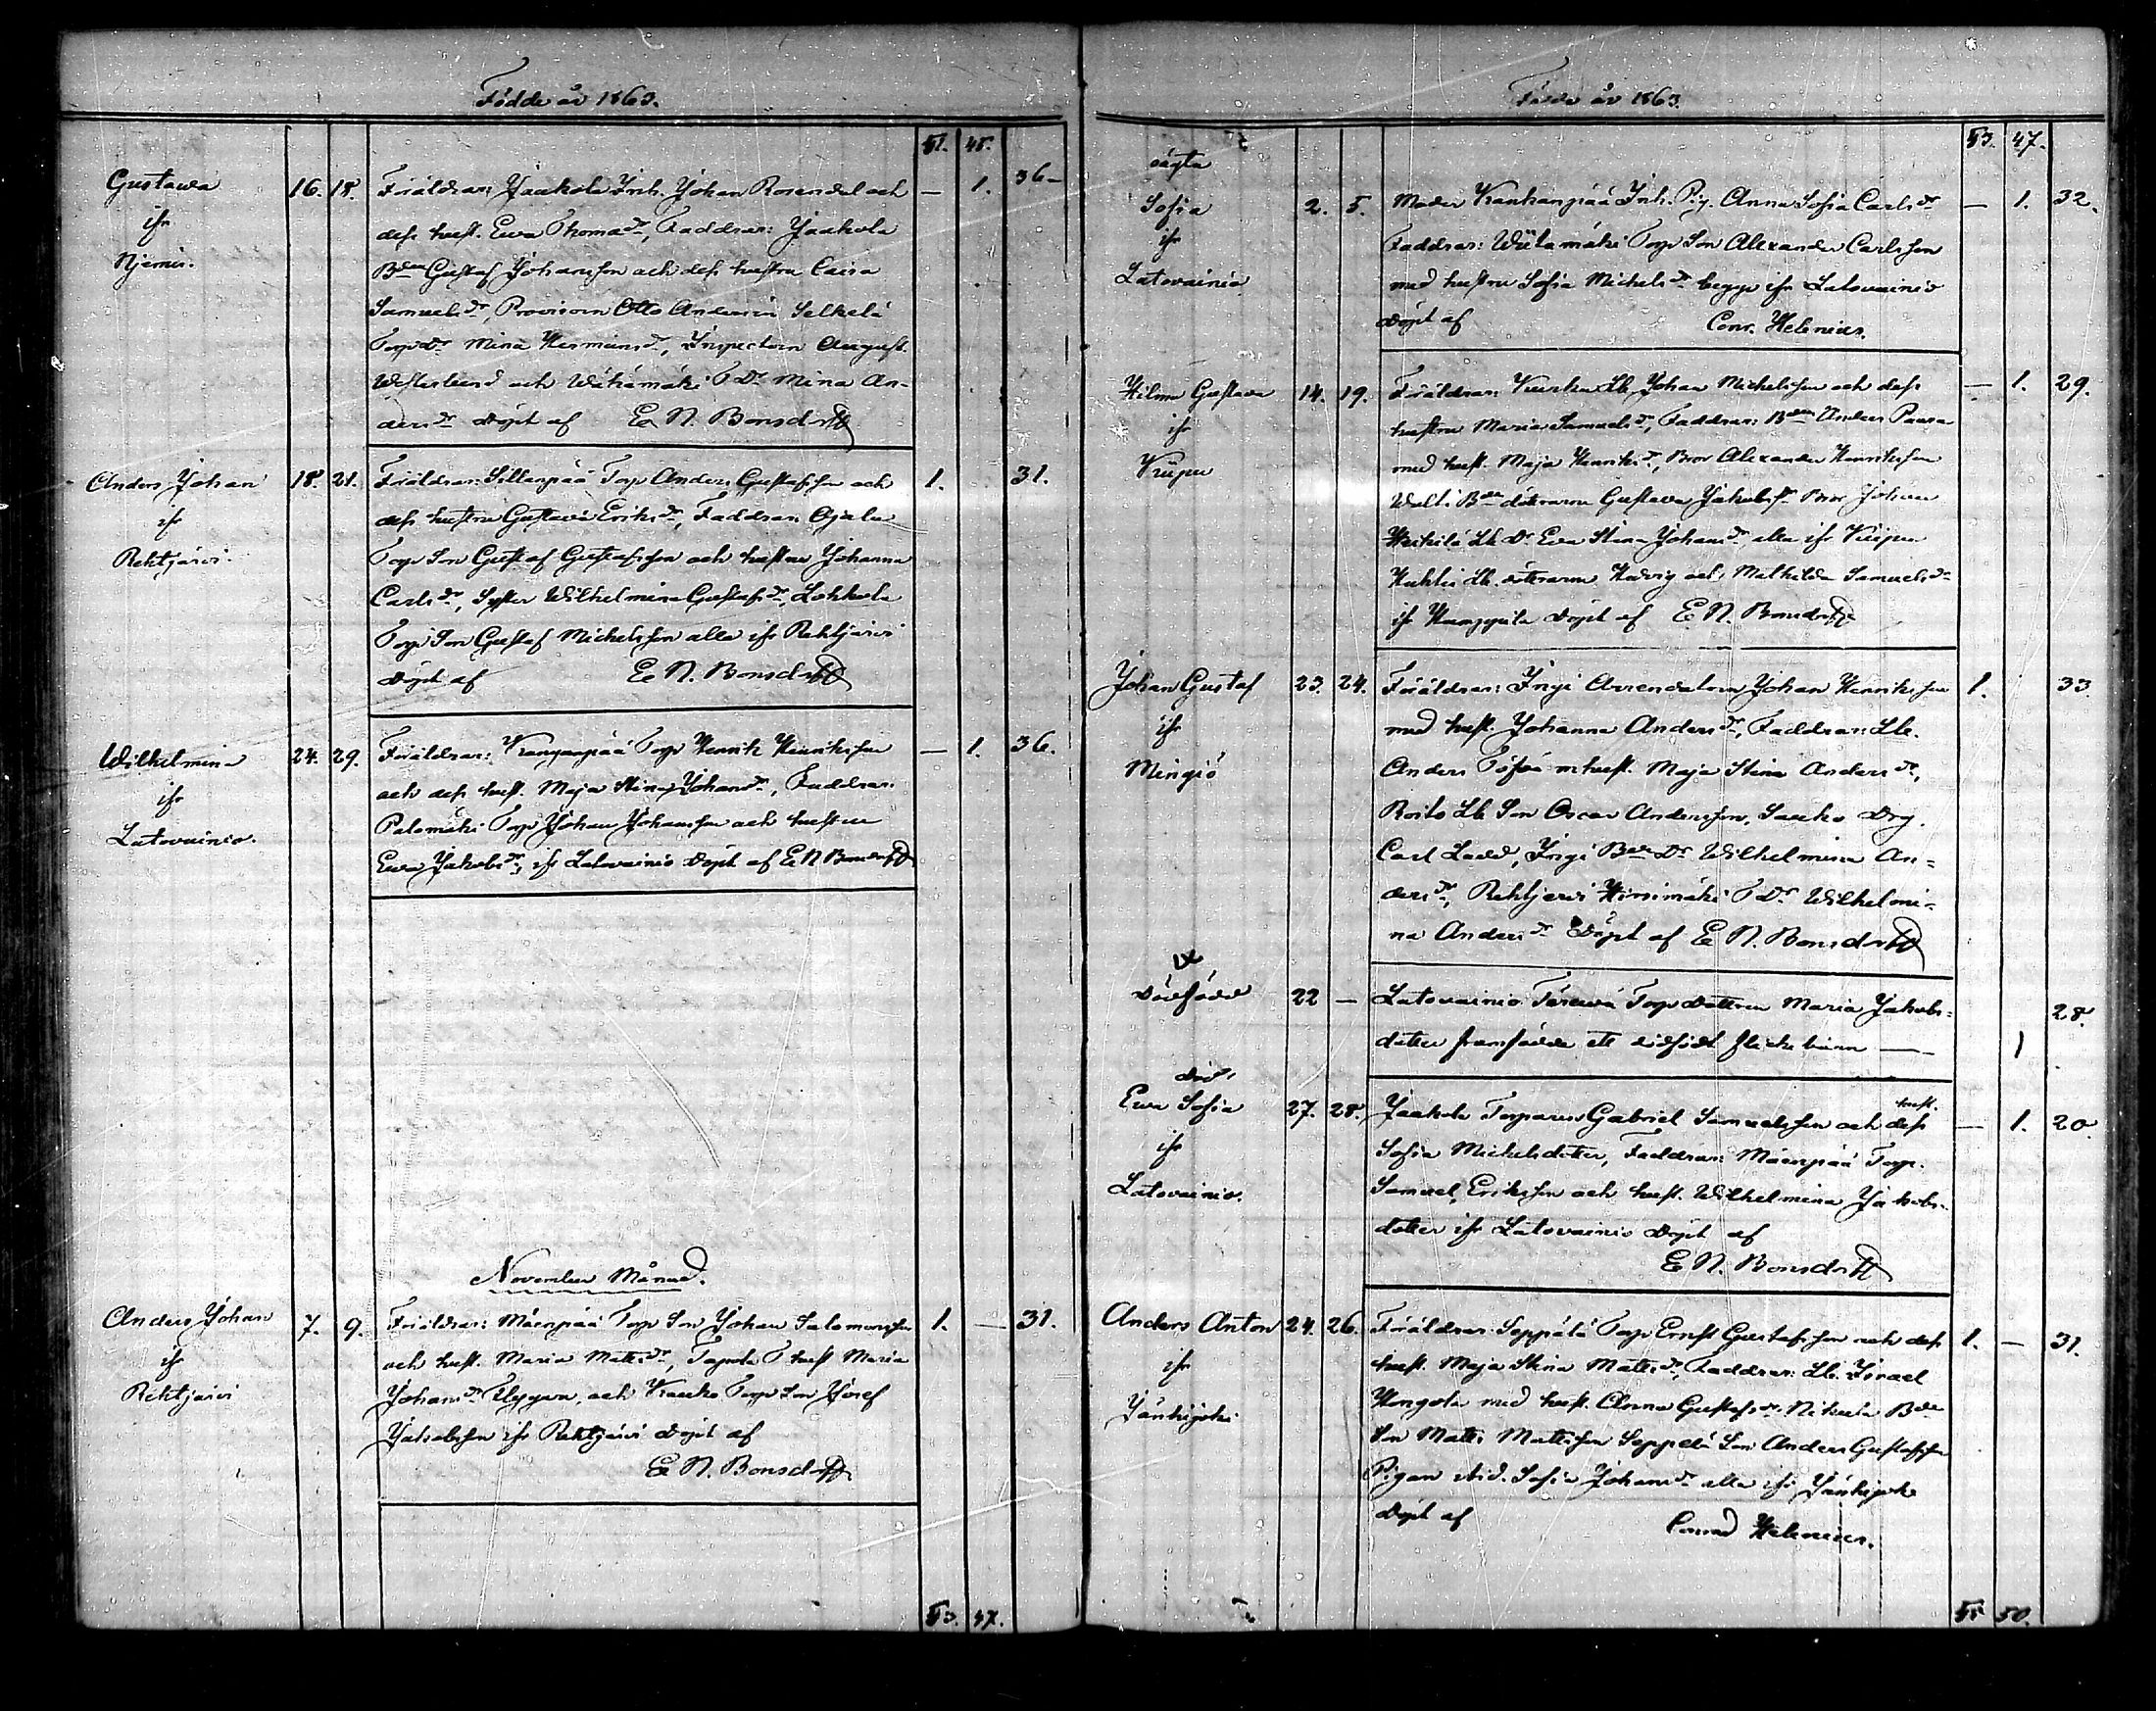 Födde år 1863.
51. 45.
Gustawa
ifr
Njemis.
16. 18. Föräldrar: Jaakola Inh. Johan Rosendal och — 1. 36–
dess hust. Ewa Thomadr, Faddrar: Jaakola
Bden Gustaf Johansson och dess hustru Caisa
Samuelsdr, Provisorn Otto Anderin Selkelä
Torpdr Mina Hermansdr, Inspectorn August
Westerlund och Wähämäki TDr Mina An-
dersdr döpt af E. N. Bonsdorff
Anders Johan
ifr
Rehtjärvi.
18. 21. Föräldrar: Sillanpää Torp Anders Gustafsson och 1. 31.
dess hustru Gustava Eriksdr, Faddrar: Ojala
Torp Son Gustaf Gustafsson och hustru Johanna
Carlsdr, Syster Wilhelmina Gustafsdr, Lohkola
Torp Son Gustaf Michelsson alla ifr Rehtjärvi
döpt af E. N. Bonsdorff
Wilhelmina
ifr
Latovainio.
24. 29. Föräldrar: Kanganpää Torp Henrik Henriksson — 1. 36.
och dess hust. Maja Stina Johansdr, Faddrar:
Palomäki Torp Johan Johansson och hustru
Ewa Jakobsdr, ifr Latovainio döpt af E N Bonsdorff
November Månad.
Anders Johan
ifr
Rehtjärvi
7. 9. Föräldrar: Mäenpää Torp Son Johan Salomonsson 1. — 31.
och hust. Maria Mattsdr, Tapola T hust Maria
Johansdr och Torp Son Josef
Jakobsson ifr Rehtjärvi döpt af
E. N. Bonsdorff
53. 47.
Födde år 1863.
53. 47.
oägta
Sofia
ifr
Latovainio
2. 5. Moder Kanhanpää Inh. Pig. Anna Sofia Carlsdr — 1. 32.
Faddrar: Wiitamäki Torp Son Alexander Carlsson
med hustru Sofia Michelsdr begge ifr Latovainio
döpt af Conr. Helenius.
Hilma Gustava
ifr
Kiipu
14. 19. Föräldrar: Lb Johan Michelsson och dess — 1. 29.
hustru Maria Samuelsdr, Faddrar: Bden Anders Paura
med hust. Maja Henriksdr, Bror Alexander Henriksson
Bde dötrarna Gustava Jakobsdr Bror Johan
Heikilä Lb Dr Eva Stina Johansdr, alla ifr Kiipu
Lb dötrarna Hedvig och Mathilda Samuelsdr
ifr Humppila döpt af E. N. Bonsdorff
Johan Gustaf
ifr
Mingiö
23. 24. Föräldrar: Yrjö Arrendatorn Johan Henriksson 1. 33.
med hust. Johanna Andersdr, Faddrar: Lb.
Anders m hust. Maja Stina Andersdr,
Roito Lb Son Oscar Andersson, Drg.
Carl Ladd, Bde Dr Wilhelmina An-
dersdr, Rehtjervi Hirsimäki TDr Wilhelmi-
na Andersdr Döpt af E. N. Bonsdorff
Dödfödd 22 — Latovainio Torp dottern Maria Jakobs-
dotter framfödde ett dödfödt flickebarn — 1 28.
död.
Ewa Sofia
ifr
Latovainio.
27. 28. Jaakola Torparen Gabriel Samuelsson och dess hust. — 1. 20.
Sofia Michelsdotter, Faddrar: Mäenpää Torp.
Samuel Eriksson och hust. Wilhelmina Jakobs-
dotter ifr Latovainio döpt af
E. N. Bonsdorff
Anders Anton
ifr
Jänhijoki
24. 26. Föräldrar: Seppälä Torp Ernst Gustafsson och dess 1. — 31.
hust. Maja Stina Mattsdr, Faddrar: Lb. Israel
Hongola med hust. Anna Gustafsdr. Nikula Bde
Son Matts Mattsson Seppelä Son Anders Gustafsson
Pigan ibid. Sofia Johansdr alla ifr Jänhijoki
döpt af Conrad Helenius.
50.